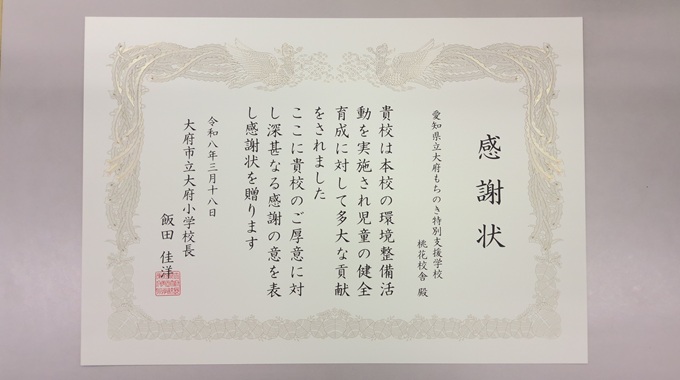 感謝状
愛知県立大府もちのき特別支援学校
桃花校舎 殿
貴校は本校の環境整備活
動を実施され児童の健全
育成に対して多大な貢献
をされました
ここに貴校のご厚意に対
し深甚なる感謝の意を表
し感謝状を贈ります
令和八年三月十八日
大府市立大府小学校長
飯田 佳洋